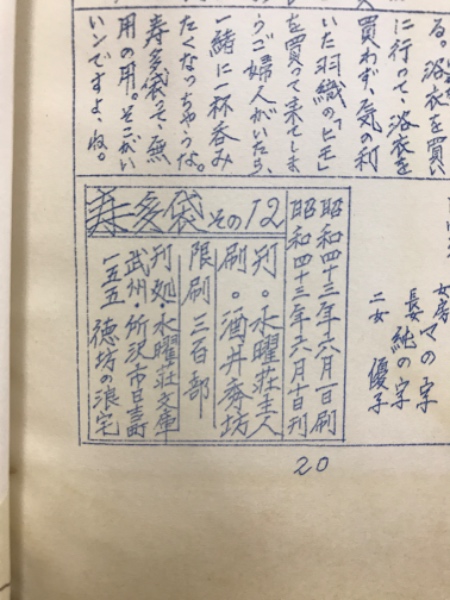 る。浴衣を買い
に行って、浴衣を
買わず、気の利
いた羽織の「ヒモ」
を買って来てしま
うご婦人がいたら、
一緒に一杯呑み
たくなっちゃうな。
寿多袋って、無
用の用。そこがい
いンですよ、ね。
女房 マの字
長女 純の字
二女 優子
寿多袋 その12
昭和四十三年六月一日刷
昭和四十三年六月十日刊
刊。水曜荘主人
刷。酒井
限刷 三百部
刊処・水曜荘文庫
武州・所沢市日吉町
一五五 徳坊の浪宅
20